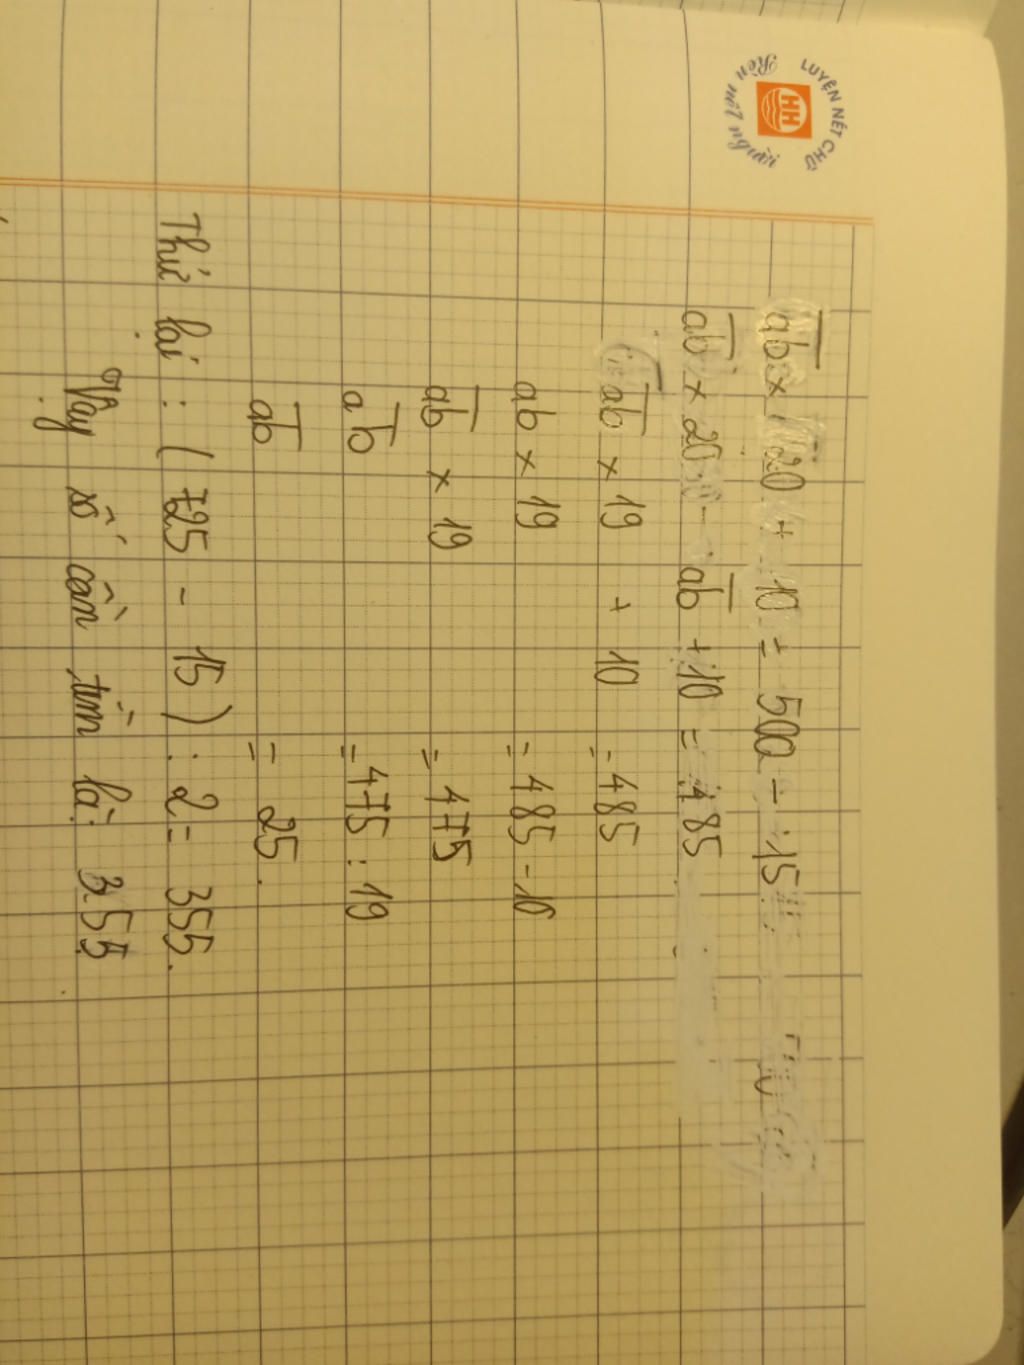 LUYỆN NÉT CHỮ
HH
Rèn nết người
ab × 20 + 10 = 500 - 15
ab × 20 - ab + 10 = 485
ab × 19 + 10 = 485
ab × 19 = 485 - 10
ab × 19 = 475
ab = 475 : 19
ab = 25.
Thử lại : (725 - 15) : 2 = 355.
Vậy số cần tìm là: 355